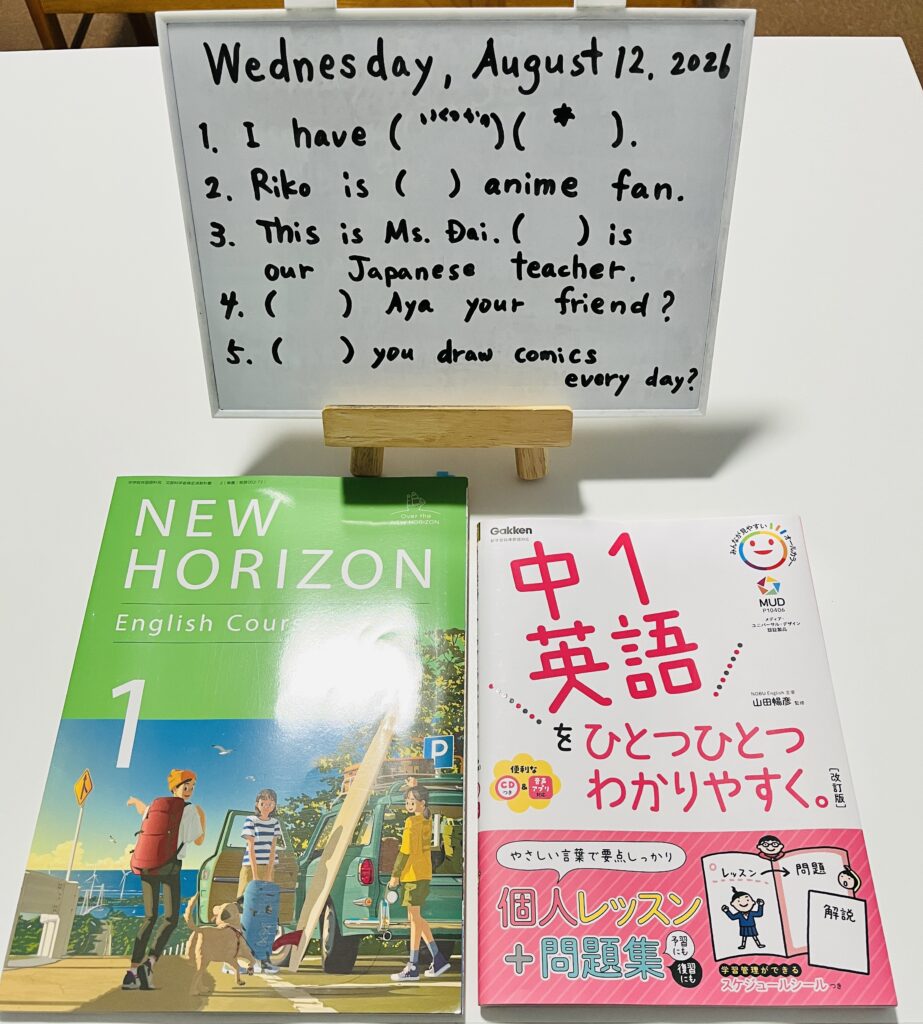 Wednesday, August 12, 2026
1. I have ( いくつかの )( * ).
2. Riko is ( ) anime fan.
3. This is Ms. Dai. ( ) is
our Japanese teacher.
4. ( ) Aya your friend?
5. ( ) you draw comics
every day?
Over the
NEW HORIZON
NEW
HORIZON
English Cours
1
P
Gakken
中1
英語
を ひとつひとつ
わかりやすく。
[改訂版]
みんなが見やすい オールカラー
MUD
P10406
メディア・
ユニバーサル・デザイン
認証製品
NOBU English 主宰
山田暢彦 監修
便利な
CDつき & 音声アプリ対応
やさしい言葉で要点しっかり
個人レッスン
+問題集
予習にも
復習にも
レッスン → 問題
解説
学習管理ができる
スケジュールシールつき